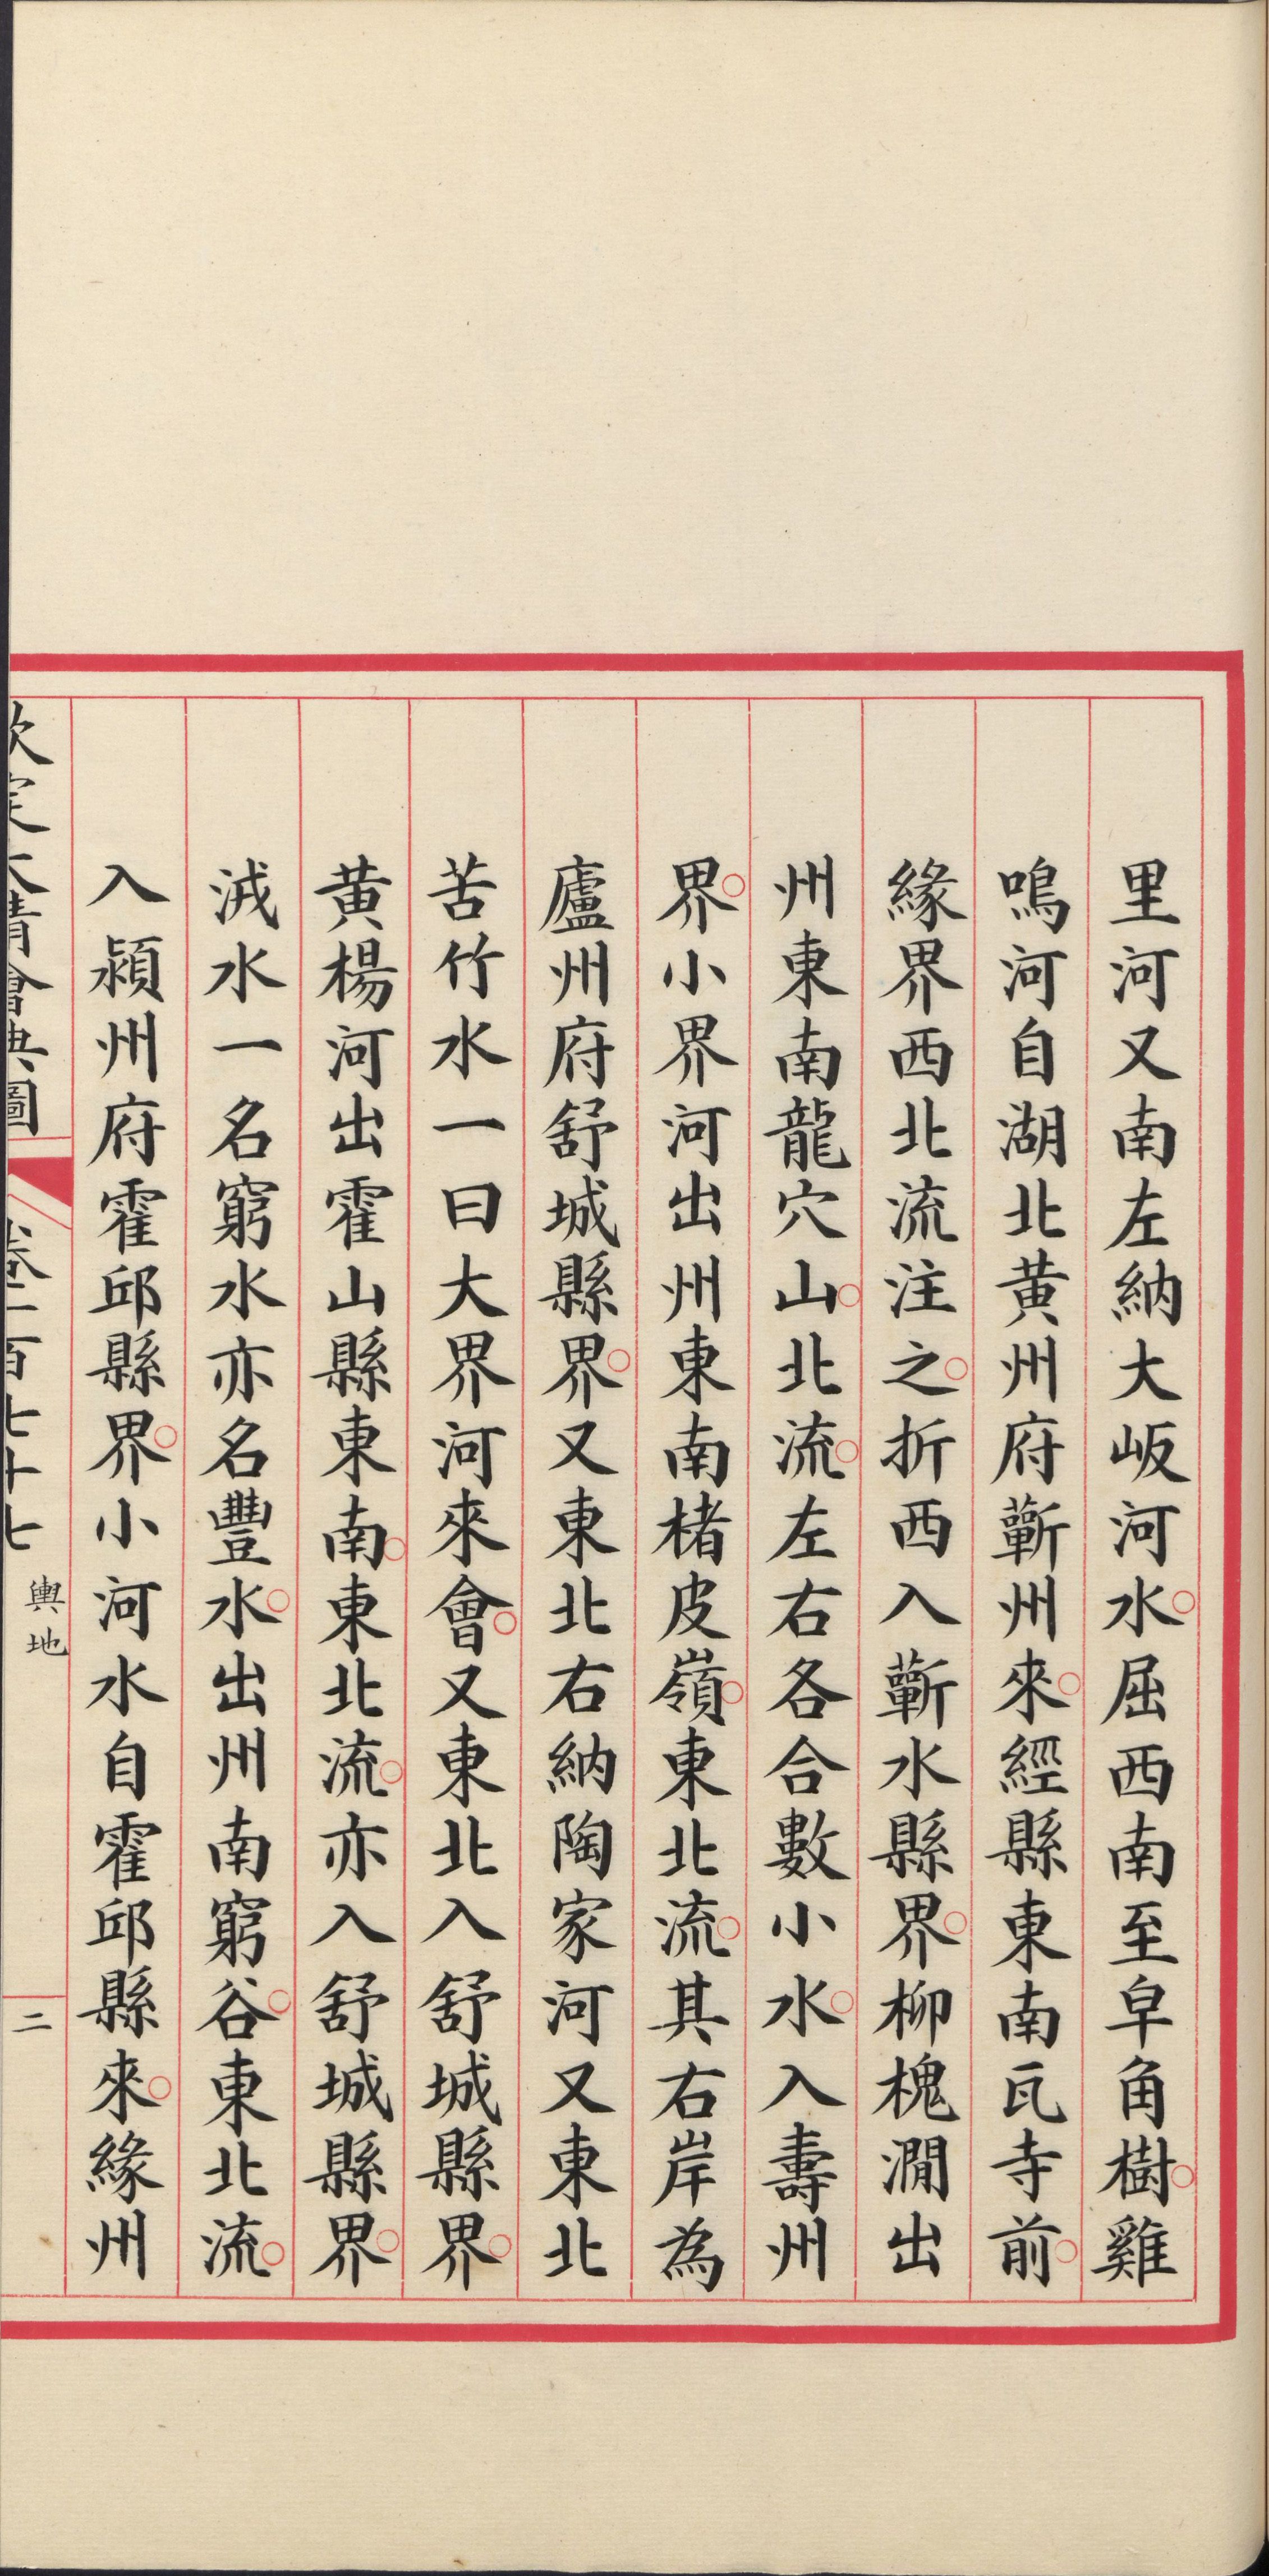 里河又南左納大岅河水○屈西南至皁角樹○雞
鳴河自湖北黃州府蘄州來○經縣東南瓦寺前○
緣界西北流注之○折西入蘄水縣界○柳槐澗出
州東南龍穴山○北流○左右各合數小水○入壽州
界○小界河出州東南楮皮嶺○東北流○其右岸為
廬州府舒城縣界○又東北右納陶家河又東北
苦竹水一曰大界河來會○又東北入舒城縣界○
黃楊河出霍山縣東南○東北流○亦入舒城縣界○
浌水一名窮水亦名豐水○出州南窮谷○東北流○
入潁州府霍邱縣界○小河水自霍邱縣來○緣州
欽定大清會典圖 卷二百七十七 輿地 二